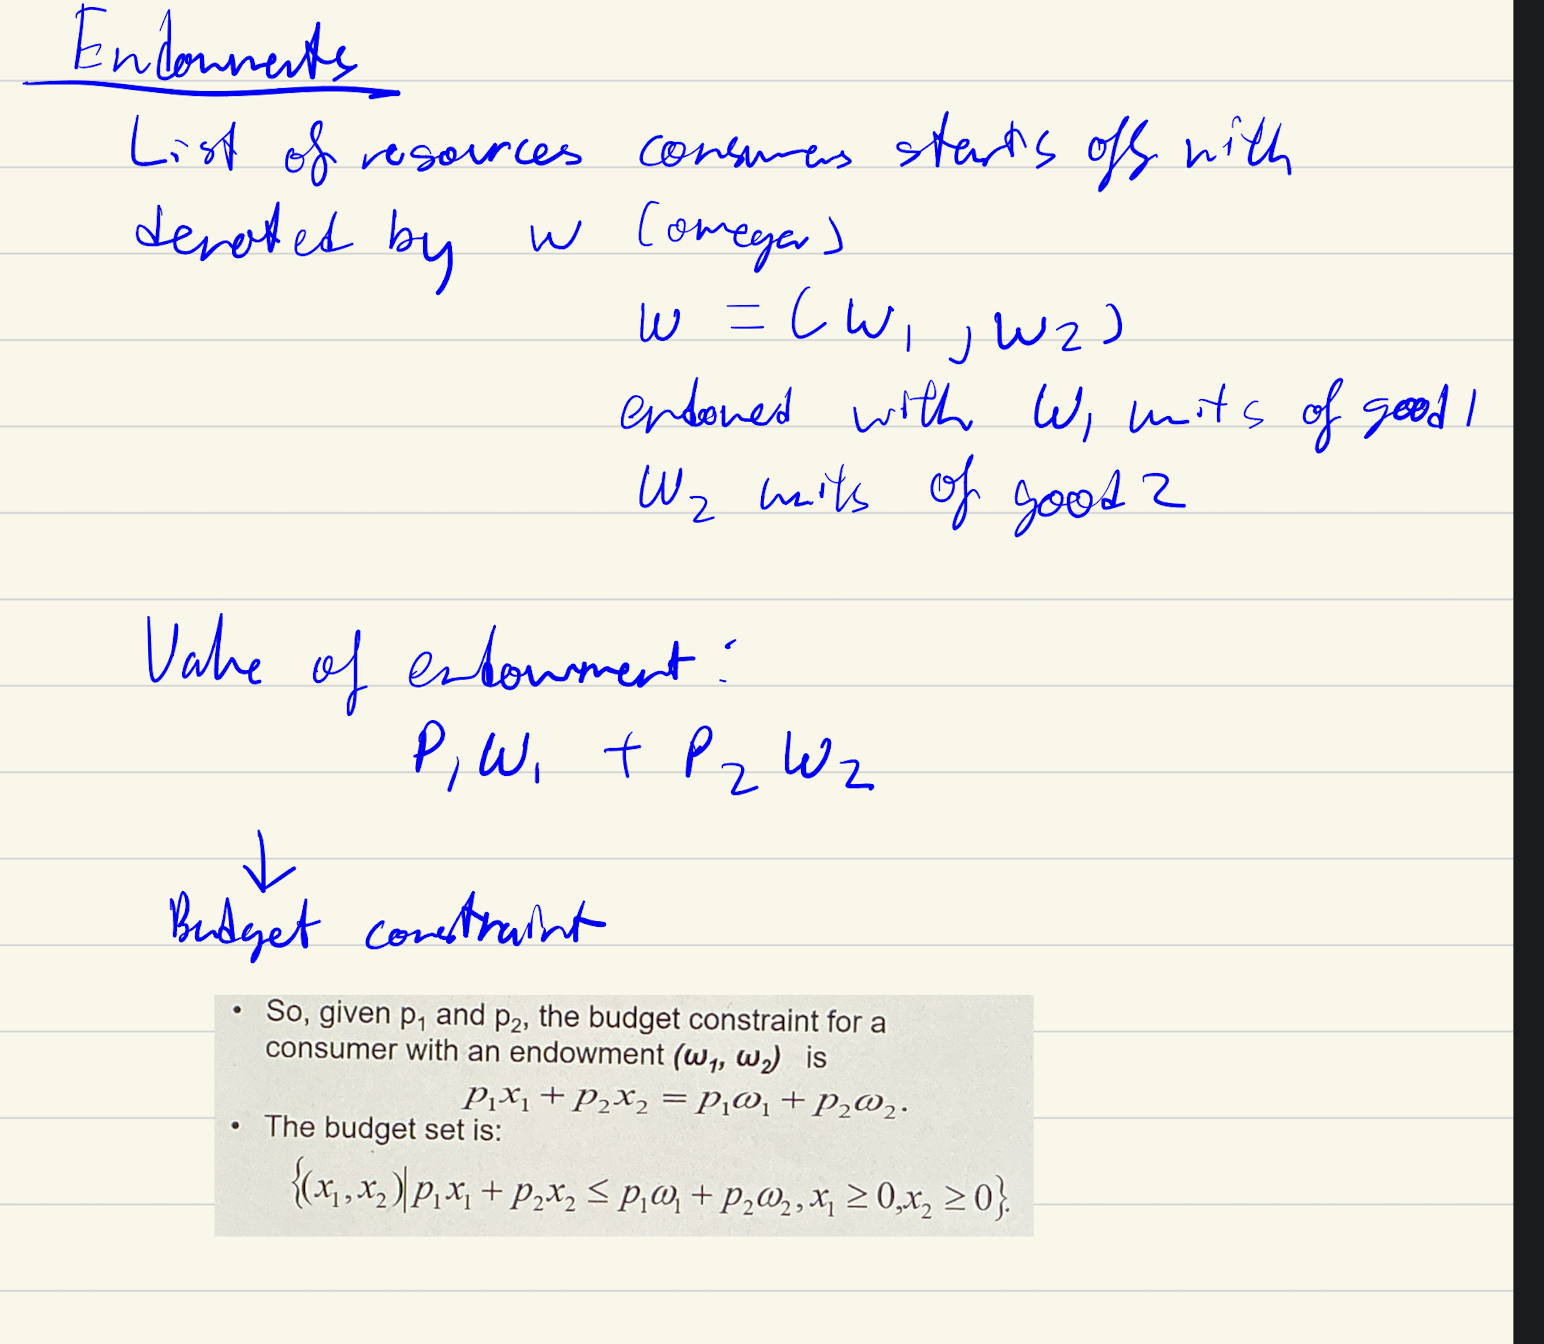 Endowments
List of resources consumers starts off with
denoted by w (omega)
w = (w₁, w₂)
endowed with w₁ units of good 1
w₂ units of good 2
Value of endowment:
P₁w₁ + P₂w₂
↓
Budget constraint
• So, given p₁ and p₂, the budget constraint for a
consumer with an endowment (ω₁, ω₂) is
p₁x₁ + p₂x₂ = p₁ω₁ + p₂ω₂.
• The budget set is:
{(x₁, x₂)|p₁x₁ + p₂x₂ ≤ p₁ω₁ + p₂ω₂, x₁ ≥ 0, x₂ ≥ 0}.